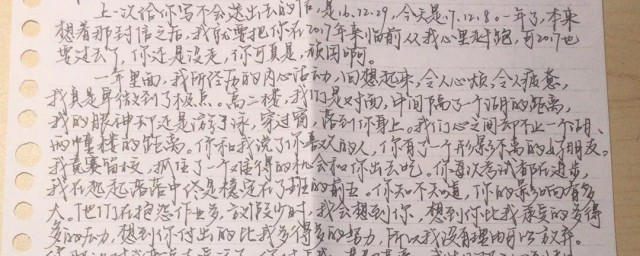 上一次给你写不会送出去的信,是16.12.29,今天是17.12.8。一年了,本来
想着那封信之后,我就要把你在2017年来临前从我心里赶跑,可2017也
要过去了,你还是没走,你可真是顽固啊。
一年里面,我所经历的内心活动,回想起来,令人心烦,令人疲惫,
我真是卑微到了极点。高二楼,我们是对面,中间隔了一个的距离,
我的眼神不还是游了,穿过窗,落到你身上。我们心之间却不止一个
两幢楼的距离。你和我说了你喜欢的人,你有了一个形影不离的好朋友。
我竞赛留校,抓住了一个难得的机会和你出去吃。你每次考试都在进步,
我在起起落落中终是稳定在了班的前五。你知不知道,你的影响有多
大。他们在抱怨作业多,放假少时,我会想到你,想到你比我承受的多得
多的压力,想到你付出的比我多得多的努力,所以我没有理由可以放弃。